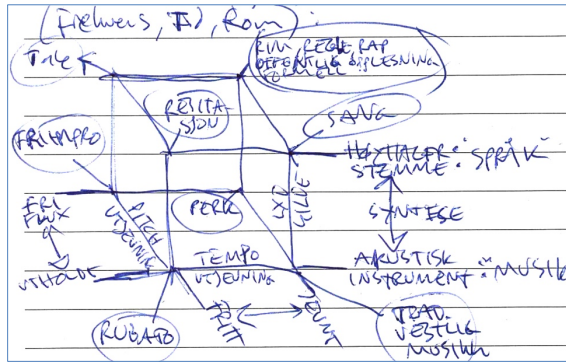 (Frekvens, Tid, Rom):
TALE
RIM, REGLE, RAP
OFFENTLIG OPPLESNING
FORMELL
RESITA-
SJON
SANG
FRI IMPRO
HØYTTALER:
STEMME: "SPRÅK"
LYD
KILDE
FRI
FLUX
PITCH
UTJEVNING
PERK
SYNTESE
UTHOLDT
TEMPO
UTJEVNING
AKUSTISK
INSTRUMENT: "MUSIKK
RUBATO
FRITT
JEVNT
TRAD.
VESTLIG
MUSIKK